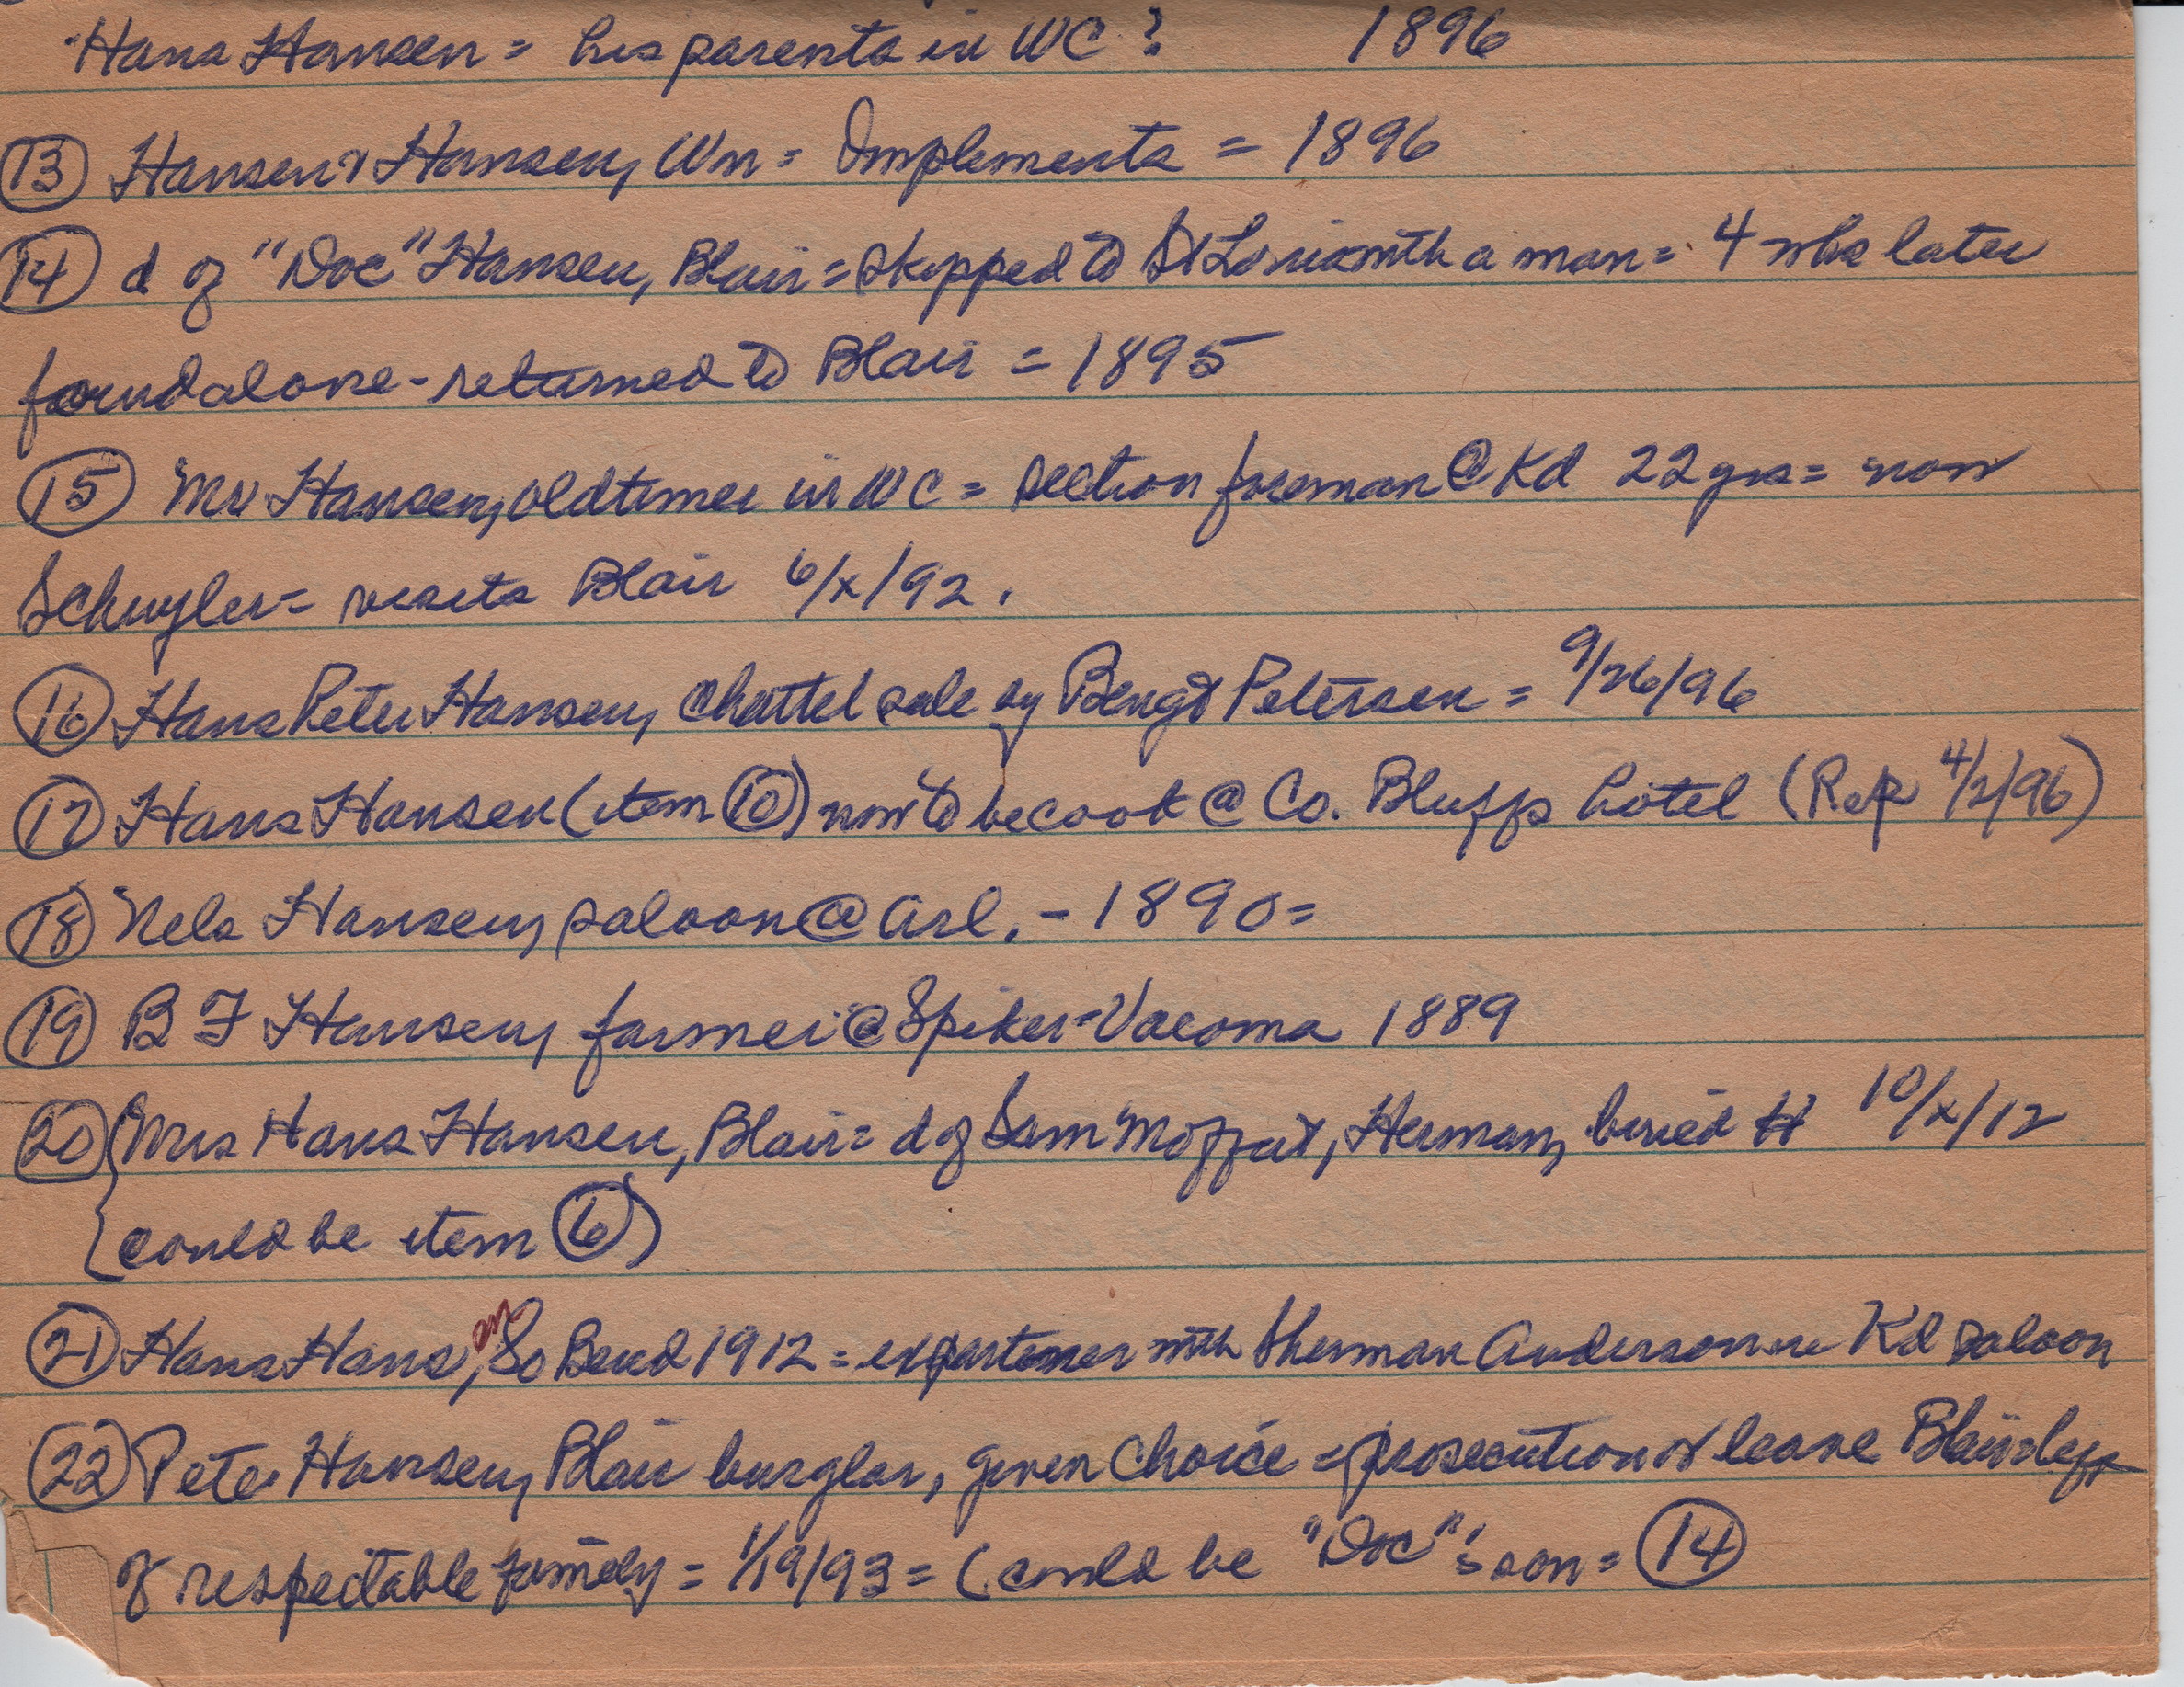 Hans Hansen = his parents in WC? 1896
(13) Hansen & Hansen, Wm = Implements = 1896
(14) d of "Doc" Hansen, Blair = skipped to St Louis with a man = 4 wks later
found alone - returned to Blair = 1895
(15) Mr Hansen, oldtimer in WC = section foreman @ Kd 22 yrs = now
Schuyler = visits Blair 6/x/92.
(16) Hans Peter Hansen, chattel sale by Bengt Petersen = 9/26/96
(17) Hans Hansen (item (10)) now to be cook @ Co. Bluffs hotel (Rep 4/2/96)
(18) Nels Hansen, saloon @ Arl. - 1890 =
(19) B F Hansen, farmer @ Spiker = Vacoma 1889
(20) {Mrs Hans Hansen, Blair = d of Sam Moffat, Herman, buried H 10/x/12
{could be item (6))
(21) Hans Hans, an So Bend 1912 = expartner with Sherman Anderson in Kd saloon
(22) Pete Hansen, Blair burglar, given choice = prosecution or leave Blair = left
of respectable family = 1/19/93 = (could be "Doc"'s son = (14)